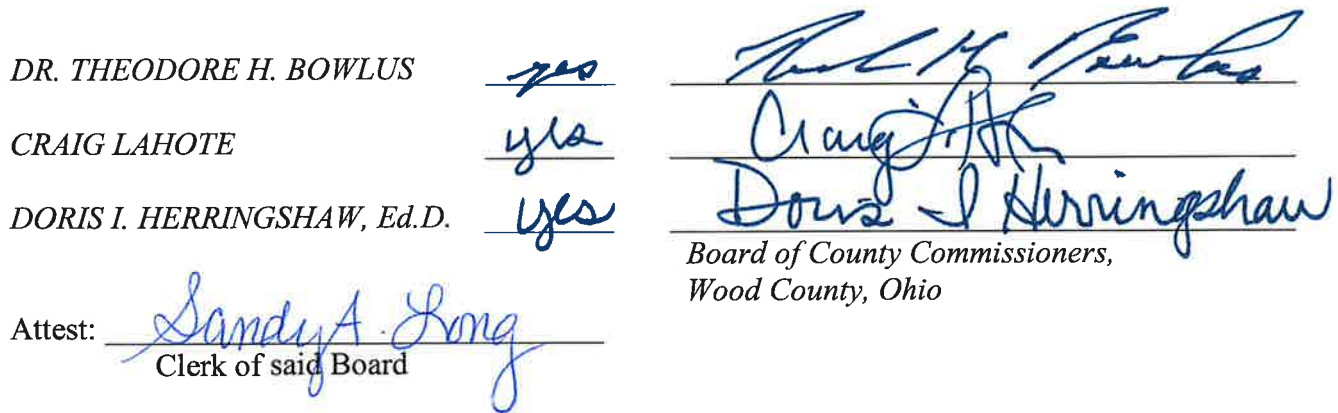 DR. THEODORE H. BOWLUS yes
CRAIG LAHOTE yes Craig
DORIS I. HERRINGSHAW, Ed.D. yes Doris I Herringshaw
Board of County Commissioners,
Wood County, Ohio
Attest: Sandy A. Long
Clerk of said Board